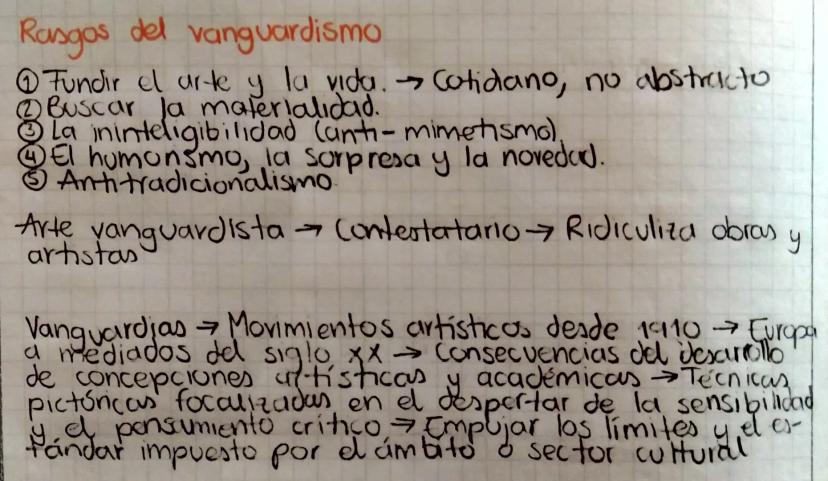 Rasgos del vanguardismo
① Fundir el arte y la vida. → Cotidiano, no abstracto
② Buscar la materialidad.
③ La ininteligibilidad (anti-mimetismo)
④ El humorismo, la sorpresa y la novedad.
⑤ Antitradicionalismo
Arte vanguardista → Contestatario → Ridiculiza obras y
artistas
Vanguardias → Movimientos artísticos desde 1910 → Europa
a mediados del siglo XX → Consecuencias del desarrollo
de concepciones artísticas y académicas → Técnicas
pictóricas focalizadas en el despertar de la sensibilidad
y el pensamiento crítico → Empujar los límites y el es-
tándar impuesto por el ámbito o sector cultural